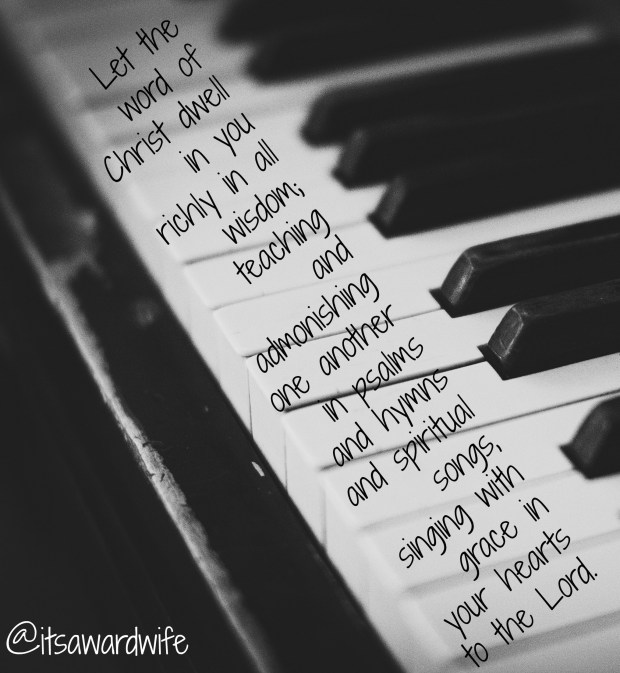 Let the
word of
Christ dwell
in you
richly in all
wisdom;
teaching
and
admonishing
one another
in psalms
and hymns
and spiritual
songs,
singing with
grace in
your hearts
to the Lord.
@itsawardwife